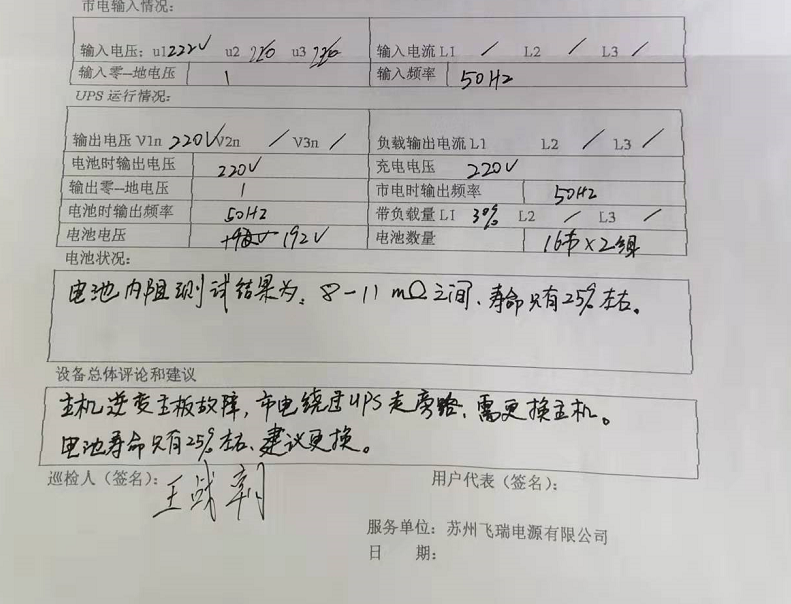 市电输入情况:
输入电压: u1 222V u2 220 u3 220 输入电流 L1 / L2 / L3 /
输入零—地电压 1 输入频率 50HZ
UPS 运行情况:
输出电压 V1n 220V V2n / V3n / 负载输出电流 L1 L2 / L3 /
电池时输出电压 220V 充电电压 220V
输出零—地电压 1 市电时输出频率 50HZ
电池时输出频率 50HZ 带负载量 L1 30% L2 / L3 /
电池电压 192V 电池数量 16节×2组
电池状况:
电池内阻测试结果为: 8-11 mΩ之间、寿命只有25%左右。
设备总体评论和建议
主机逆变主板故障, 市电绕过UPS走旁路、需更换主机。
电池寿命只有25%左右、建议更换。
巡检人（签名）: 王 用户代表（签名）:
服务单位: 苏州飞瑞电源有限公司
日 期: